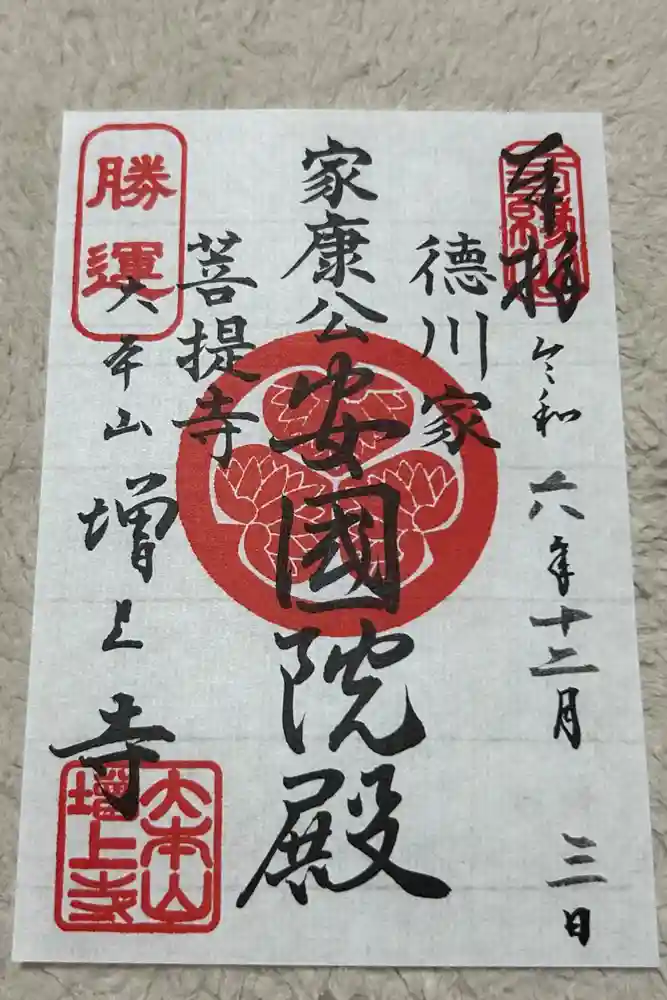 奉拝
令和六年十二月三日
徳川家
家康公
安國院殿
菩提寺
勝運
大本山
増上寺
大本山
増上寺